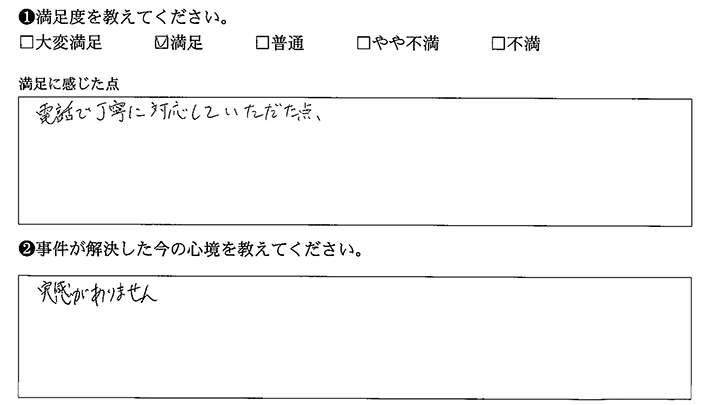 ❶満足度を教えてください。
☐大変満足 ☑満足 ☐普通 ☐やや不満 ☐不満
満足に感じた点
電話で丁寧に対応していただた点、
❷事件が解決した今の心境を教えてください。
実感がありません